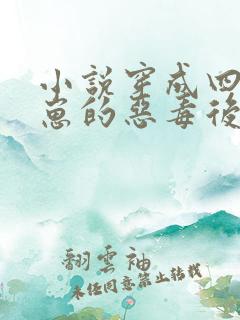 小說穿成四
崽的惡毒後
翻雲袖
未经同意禁止转载